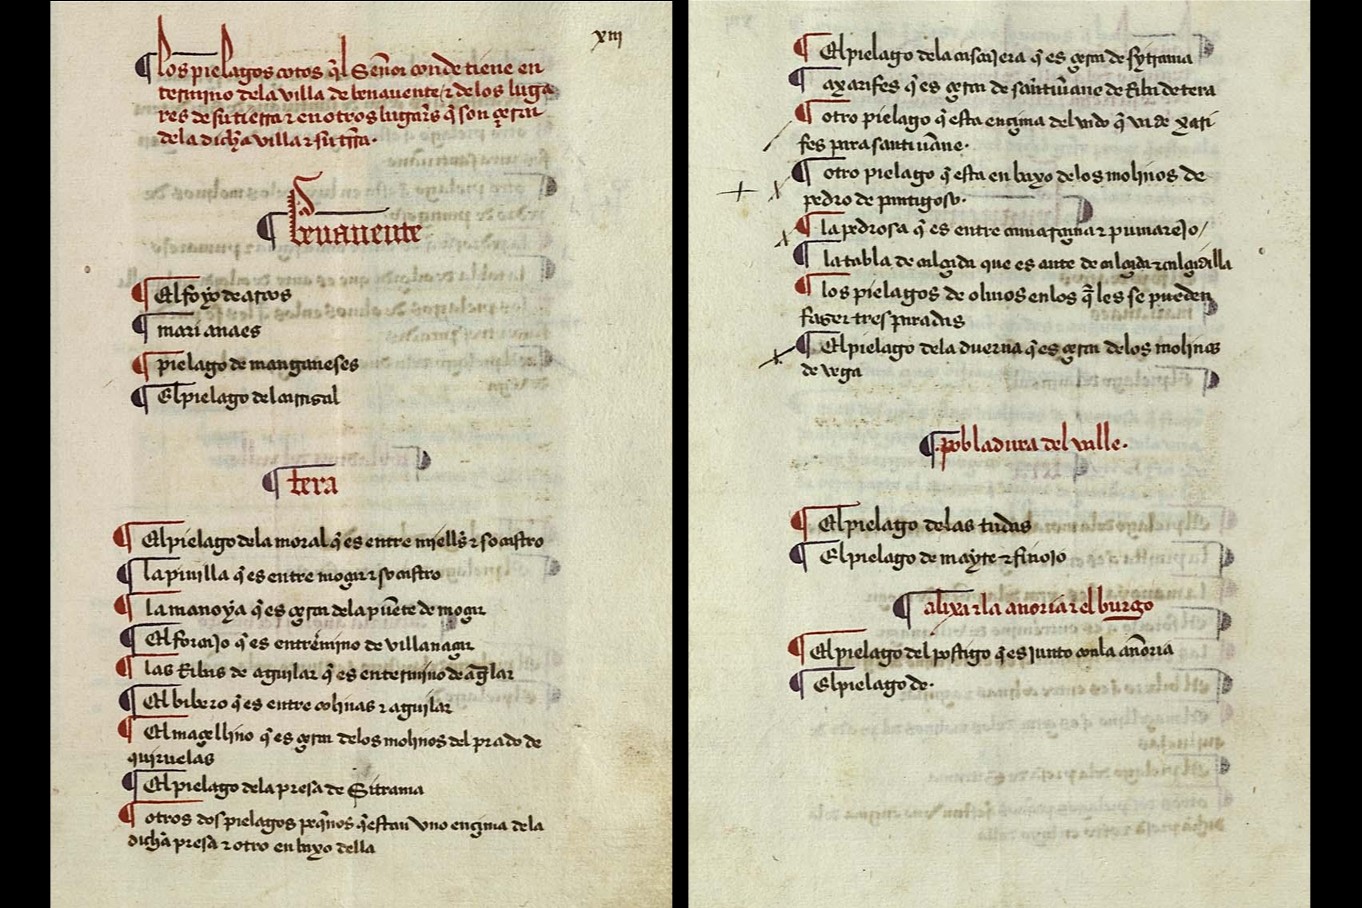 xiij
los pielagos cotos q̃l Señor conde tiene en
termino dela villa de benauente / τ delos luga
res de su tierra τ en otros lugar̃s q̃ son çerca
dela dicha villa τ su tr̃ra.
benauente
El foyo de arcos
mari anaes
pielago de manganeses
El pielago del carrisal
tera
El pielago dela moral q̃ es entre miells̃ τ socastro
la pinilla q̃ es entre mogar τ socastro
la manoya q̃ es çerca dela puẽte de mogar
El fornjo q̃ es en termino de villanazar
las Ribas de aguilar q̃ es en termino de ag̃lar
El bibero q̃ es entre colinas τ aguilar
El magellino q̃ es çerca delos molinos del prado de
quiruelas
El pielago dela presa de Sitrama
otros dos pielagos peq̃nos q̃ estan vno ençima dela
dicha presa τ otro en baxo della
El pielago dela cascajera q̃ es çerca de sytrama
axarifes q̃ es çerca de santiuãne de Riba de tera
otro pielago q̃ esta ençima del vado q̃ va de xari
fes para santiuãne.
otro pielago q̃ esta en baxo delos molinos de
pedro de pantigoso.
la pedrosa q̃ es entre camarzana τ pumarejo /
la tabla de calçada que es ante de calçada τ calçadilla
los pielagos de olmos enlos q̃les se pueden
faser tres paradas
El pielago dela duerna q̃ es çerca delos molinos
de vega
pobladura del valle.
El pielago delas tudas
El pielago de mayte τ finojo
alixa τ la anoria τ el burgo
El pielago del postigo q̃ es junto conla añoria
El pielago de.